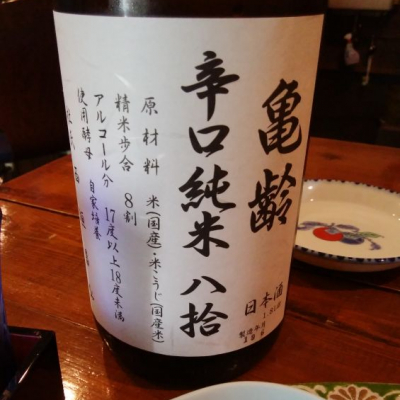 亀齢
辛口純米 八拾
日本酒
製造年月
原材料 米(国産)・米こうじ(国産米)
精米歩合 8割
アルコール分 17度以上18度未満
使用酵母 自家培養